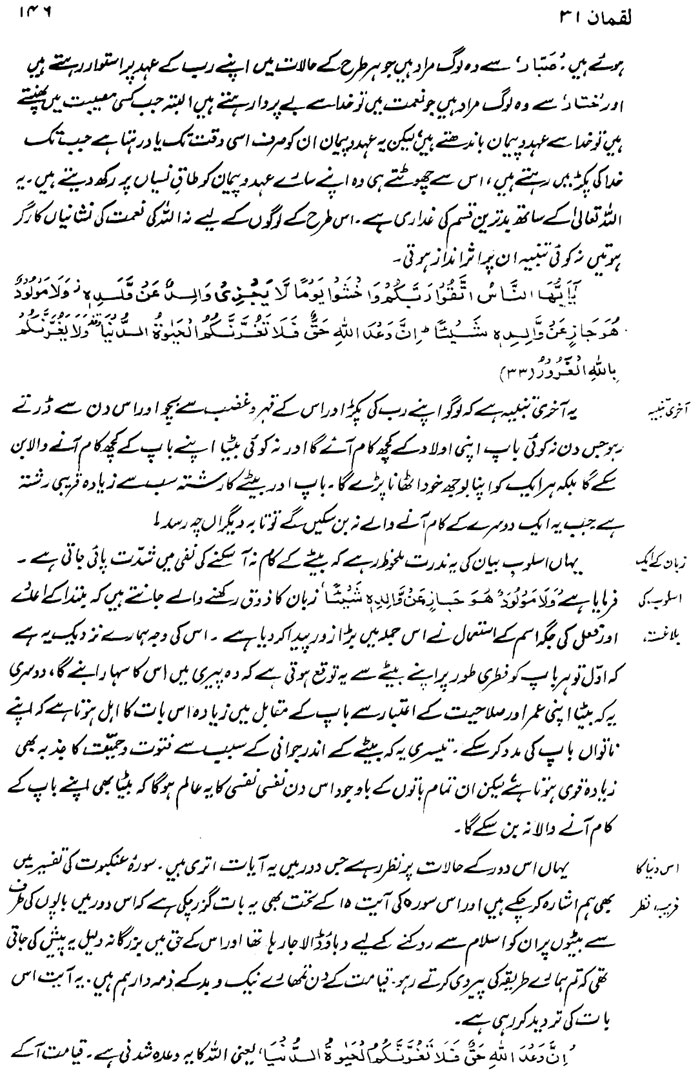 لقمان ۳۱ ۱۴۶
ہوتے ہیں۔ ’صَبَّار‘ سے وہ لوگ مراد ہیں جو ہر طرح کے حالات میں اپنے رب کے عہد پر استوار رہتے ہیں
اور ’ختار‘ سے وہ لوگ مراد ہیں جو نعمت میں تو خدا سے بے پروا رہتے ہیں البتہ جب کسی مصیبت میں پھنستے
ہیں تو خدا سے عہد و پیمان باندھتے ہیں لیکن یہ عہد و پیمان ان کو صرف اسی وقت تک یاد رہتا ہے جب تک
خدا کی پکڑ میں رہتے ہیں، اس سے چھوٹتے ہی وہ اپنے سارے عہد و پیمان کو طاقِ نسیاں پر رکھ دیتے ہیں۔ یہ
اللہ تعالیٰ کے ساتھ بدترین قسم کی غداری ہے۔ اس طرح کے لوگوں کے لیے نہ اللہ کی نعمت کی نشانیاں کارگر
ہوتیں نہ کوئی تنبیہ ان پر اثر انداز ہوتی۔
يٰٓاَيُّهَا النَّاسُ اتَّقُوْا رَبَّكُمْ وَاخْشَوْا يَوْمًا لَّا يَجْزِيْ وَالِدٌ عَنْ وَّلَدِهٖ ز وَلَا مَوْلُوْدٌ
هُوَ جَازٍ عَنْ وَّالِدِهٖ شَيْـًٔا ط اِنَّ وَعْدَ اللّٰهِ حَقٌّ فَلَا تَغُرَّنَّكُمُ الْحَيٰوةُ الدُّنْيَا وقفة وَلَا يَغُرَّنَّكُمْ
بِاللّٰهِ الْغَرُوْرُ (۳۳)
آخری تنبیہ
یہ آخری تنبیہ ہے کہ لوگو اپنے رب کی پکڑ اور اس کے قہر و غضب سے بچو اور اس دن سے ڈرتے
رہو جس دن نہ کوئی باپ اپنی اولاد کے کچھ کام آئے گا اور نہ کوئی بیٹا اپنے باپ کے کچھ کام آنے والا بن
سکے گا بلکہ ہر ایک کو اپنا بوجھ خود اٹھانا پڑے گا۔ باپ اور بیٹے کا رشتہ سب سے زیادہ قریبی رشتہ
ہے جب یہ ایک دوسرے کے کام آنے والے نہ بن سکیں گے تو تا بہ دیگراں چہ رسد!
زبان کے ایک
یہاں اسلوبِ بیان کی یہ ندرت ملحوظ رہے کہ بیٹے کے کام نہ آ سکنے کی نفی میں شدّت پائی جاتی ہے۔
اسلوب کی
فرمایا ہے ’وَلَا مَوْلُوْدٌ هُوَ جَازٍ عَنْ وَّالِدِهٖ شَيْـًٔا‘ زبان کا ذوق رکھنے والے جانتے ہیں کہ مبتدا کے اعادے
بلاغت
اور فعل کی جگہ اسم کے استعمال نے اس جملہ میں بڑا زور پیدا کر دیا ہے۔ اس کی وجہ ہمارے نزدیک یہ ہے
کہ اوّل تو ہر باپ کو فطری طور پر اپنے بیٹے سے یہ توقع ہوتی ہے کہ وہ پیری میں اس کا سہارا بنے گا، دوسری
یہ کہ بیٹا اپنی عمر اور صلاحیت کے اعتبار سے باپ کے مقابل میں زیادہ اس بات کا اہل ہوتا ہے کہ اپنے
ناتواں باپ کی مدد کر سکے۔ تیسری یہ کہ بیٹے کے اندر جوانی کے سبب سے فتوت و حمیّت کا جذبہ بھی
زیادہ قوی ہوتا ہے لیکن ان تمام باتوں کے باوجود اس دن نفسی نفسی کا یہ عالم ہوگا کہ بیٹا بھی اپنے باپ کے
کام آنے والا نہ بن سکے گا۔
اس دنیا کا
یہاں اس دور کے حالات پر نظر رہے جس دور میں یہ آیات اتری ہیں۔ سورۂ عنکبوت کی تفسیر میں
فریبِ نظر
بھی ہم اشارہ کر چکے ہیں اور اس سورہ کی آیت ۱۵ کے تحت بھی یہ بات گزر چکی ہے کہ اس دور میں باپوں کی طرف
سے بیٹوں پر ان کو اسلام سے روکنے کے لیے دباؤ ڈالا جا رہا تھا اور اس کے حق میں بزرگانہ دلیل یہ پیش کی جاتی
تھی کہ تم ہمارے طریقہ کی پیروی کرتے رہو۔ قیامت کے دن تمہارے نیک و بد کے ذمہ دار ہم ہیں۔ یہ آیت اس
بات کی تردید کر رہی ہے۔
’اِنَّ وَعْدَ اللّٰهِ حَقٌّ فَلَا تَغُرَّنَّكُمُ الْحَيٰوةُ الدُّنْيَا‘، یعنی اللہ کا یہ وعدہ شدنی ہے۔ قیامت آ کے